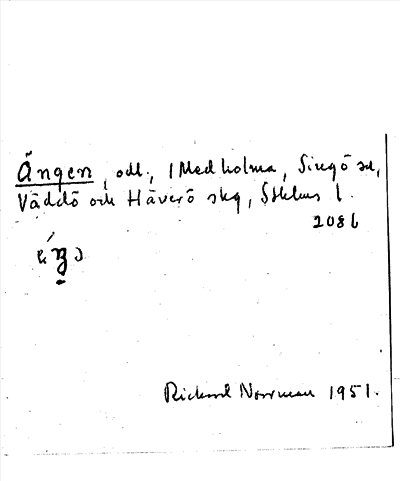 Ängen, odl., 1 Medholma, Singö sn,
Väddö och Häverö skg, Sthlms l.
2086
Rickard Norrman 1951.